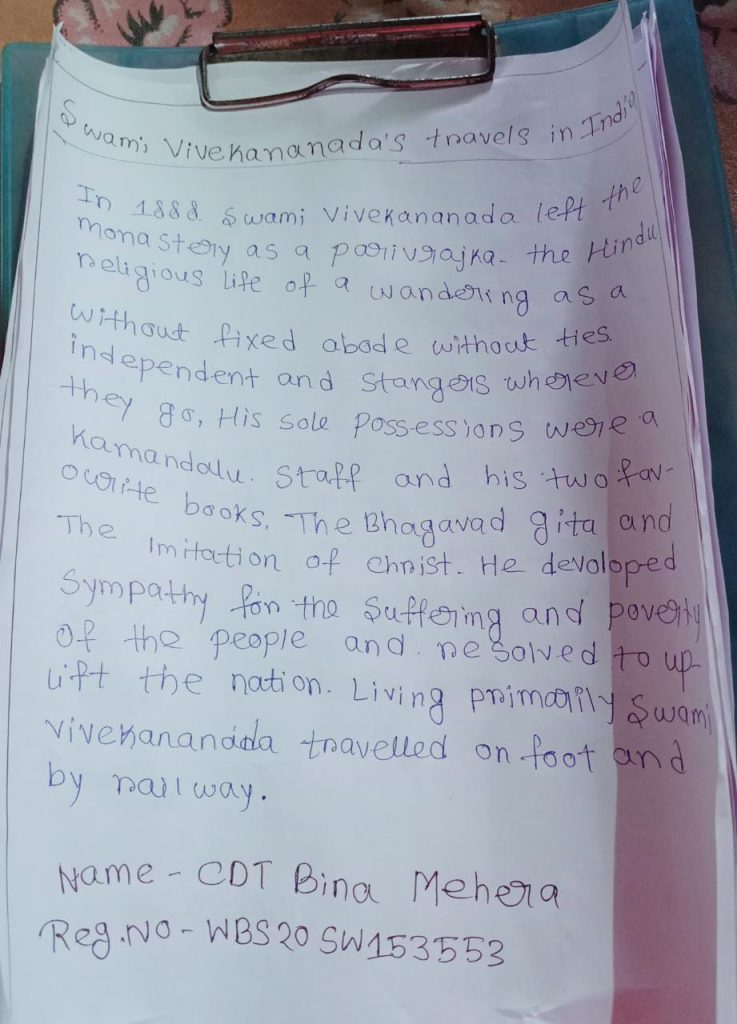 Swami Vivekananada's travels in India
In 1888. Swami Vivekananada left the
monastery as a parivrajka- the Hindu
religious life of a wandering as a
without fixed abode without ties.
independent and stangers wherever
they go, His sole possessions were a
Kamandalu. Staff and his two fav-
ourite books, The Bhagavad gita and
The Imitation of christ. He devoloped
Sympathy for the Suffering and poverty
Of the people and. resolved to up-
lift the nation. Living primarily Swami
Vivekananada travelled on foot and
by railway.
Name - CDT Bina Mehera
Reg.No - WBS20 SW153553